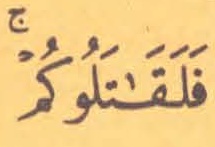 فَلَقَٰتَلُوكُمْۚ